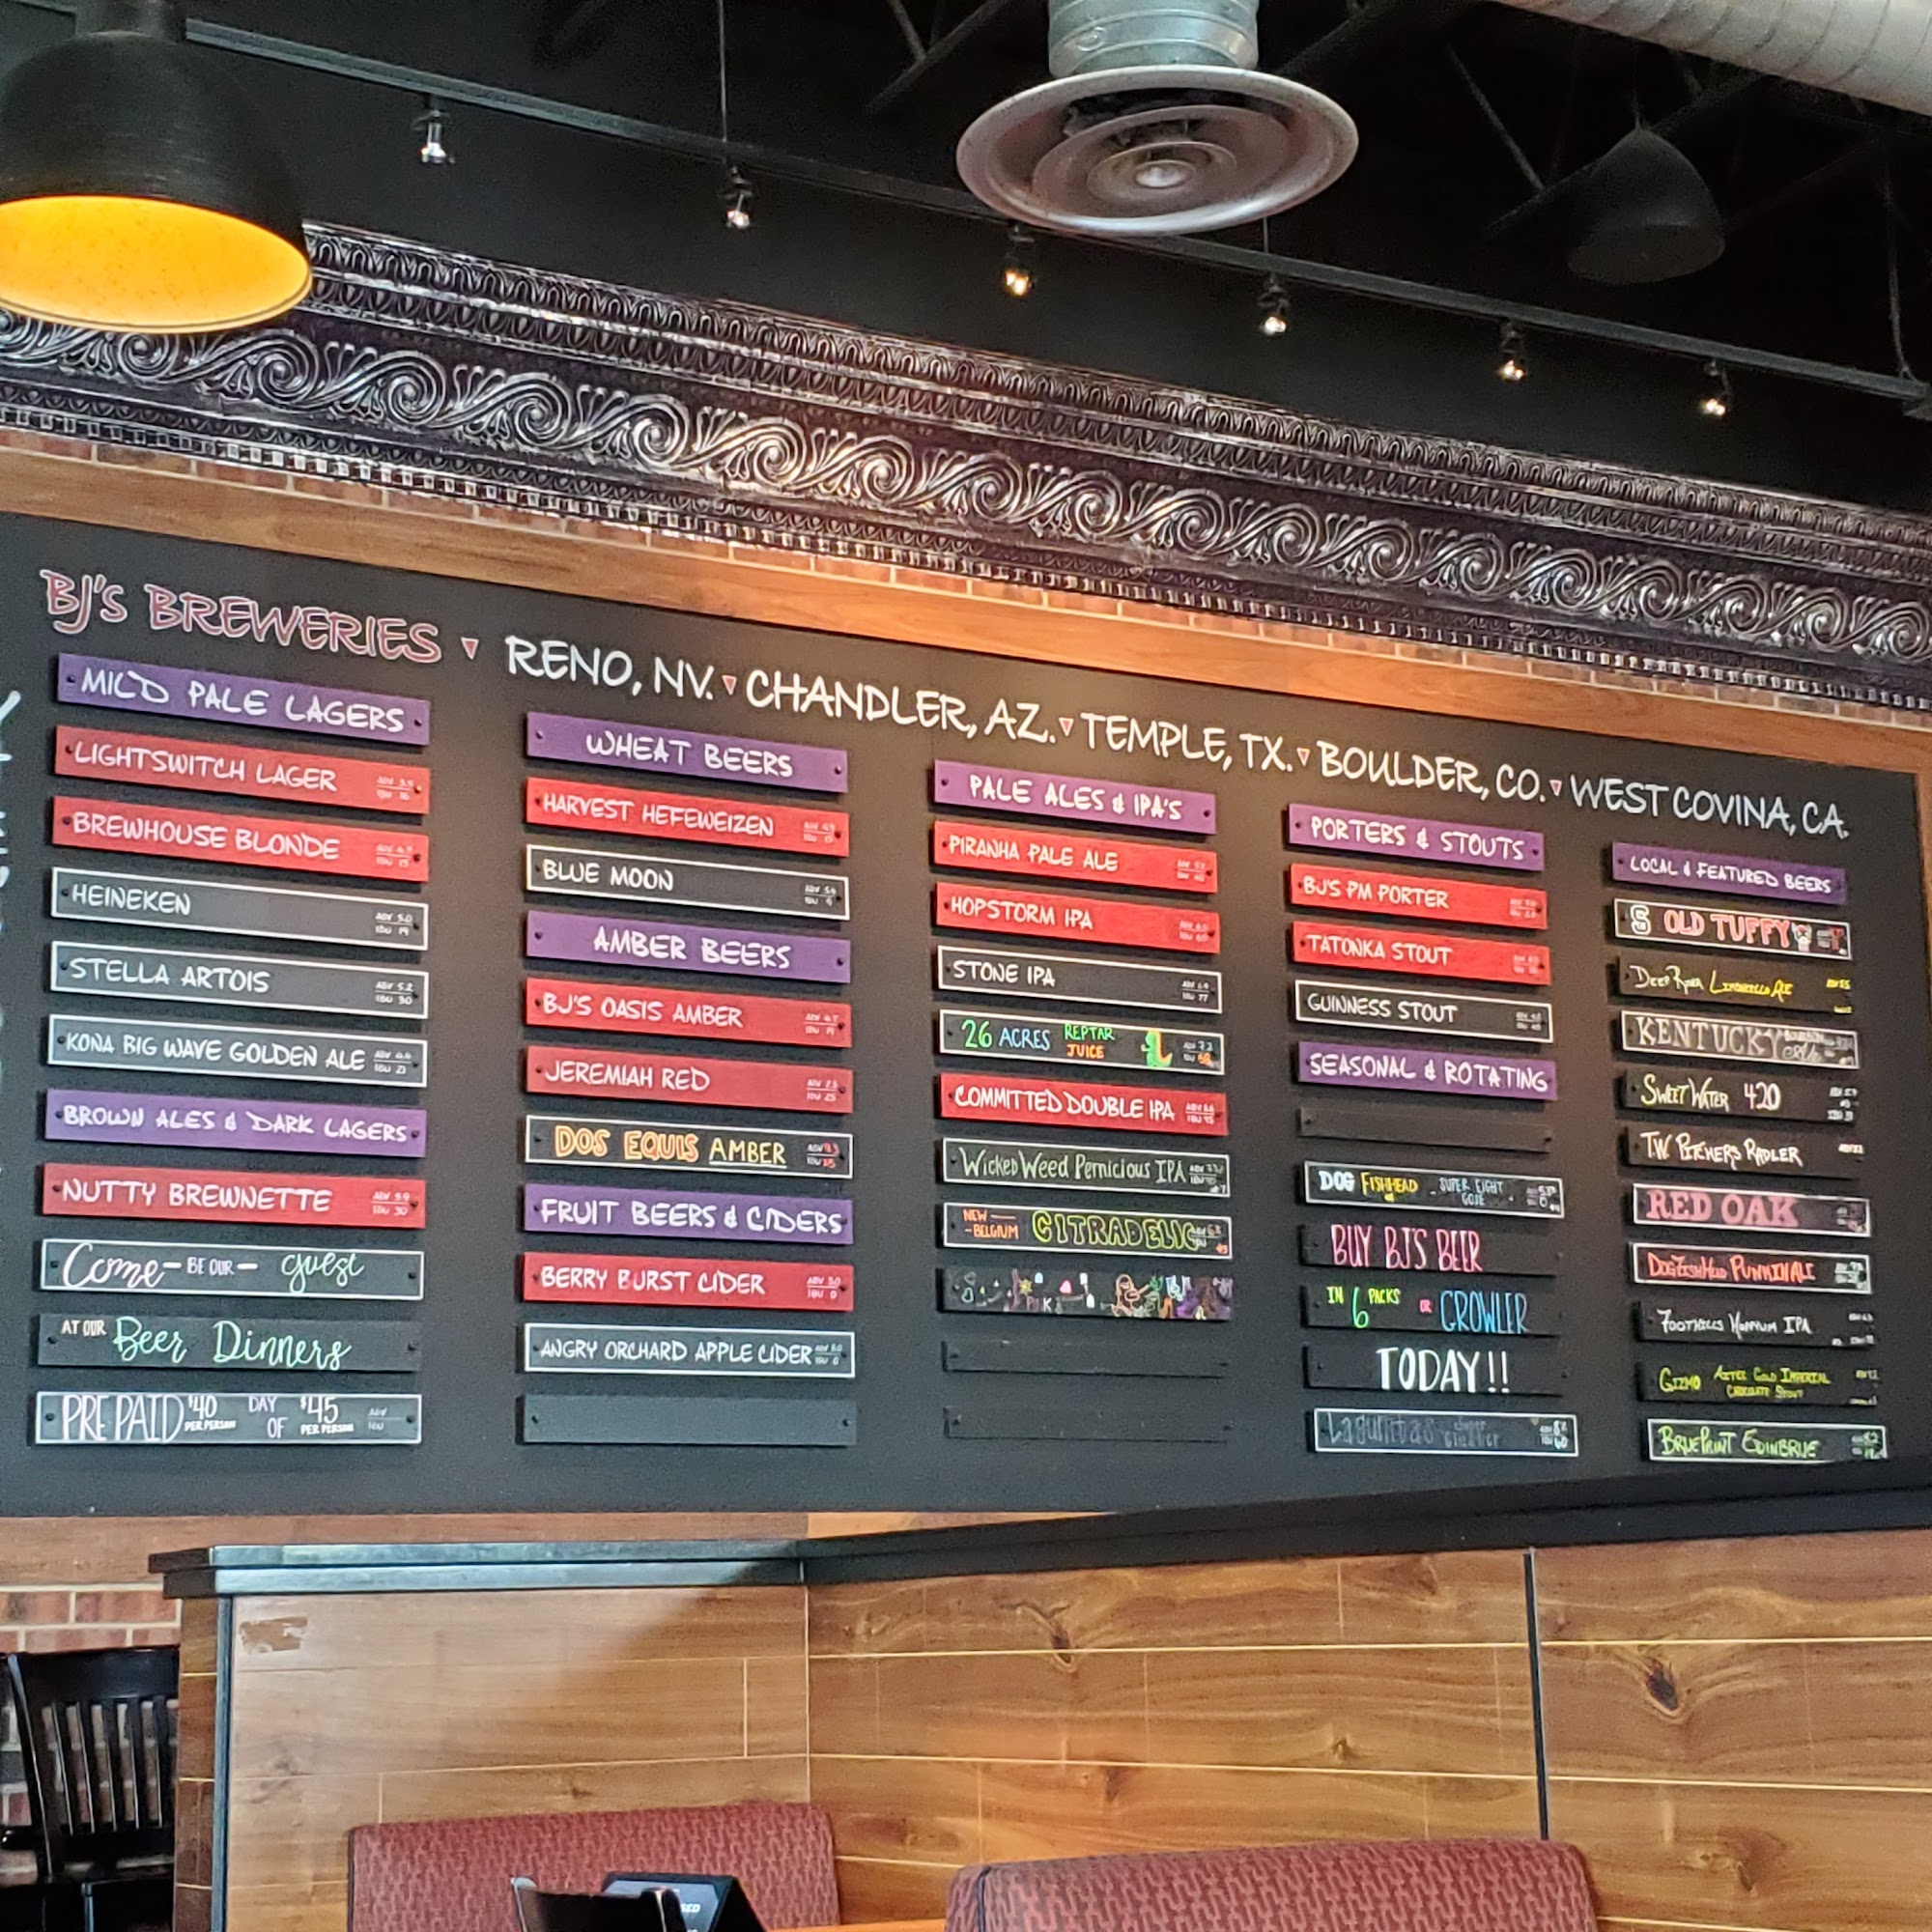 BJ'S BREWERIES ▼ RENO, NV. ▼ CHANDLER, AZ. ▼ TEMPLE, TX. ▼ BOULDER, CO. ▼ WEST COVINA, CA.
MILD PALE LAGERS
LIGHTSWITCH LAGER
BREWHOUSE BLONDE
HEINEKEN ABV 5.0 IBU 19
STELLA ARTOIS ABV 5.2 IBU 30
KONA BIG WAVE GOLDEN ALE ABV 4.4 IBU 21
BROWN ALES & DARK LAGERS
NUTTY BREWNETTE ABV 5.9 IBU 30
Come - BE OUR - guest
AT OUR Beer Dinners
PREPAID $40 PER PERSON DAY OF $45 PER PERSON ABV IBU
WHEAT BEERS
HARVEST HEFEWEIZEN
BLUE MOON ABV 5.4 IBU 9
AMBER BEERS
BJ'S OASIS AMBER
JEREMIAH RED ABV 7.3 IBU 25
DOS EQUIS AMBER
FRUIT BEERS & CIDERS
BERRY BURST CIDER ABV 5.0 IBU 0
ANGRY ORCHARD APPLE CIDER ABV 5.0 IBU 0
PALE ALES & IPA'S
PIRANHA PALE ALE
HOPSTORM IPA
STONE IPA ABV 6.9 IBU 77
26 ACRES REPTAR JUICE ABV 7.2
COMMITTED DOUBLE IPA
Wicked Weed Pernicious IPA
NEW BELGIUM CITRADELIC
PORTERS & STOUTS
BJ'S PM PORTER
TATONKA STOUT
GUINNESS STOUT
SEASONAL & ROTATING
DOG FISHHEAD - SUPER EIGHT GOSE -
BUY BJ'S BEER
IN 6 PACKS OR GROWLER
TODAY!!
Lagunitas
LOCAL & FEATURED BEERS
S OLD TUFFY
DEEP RIVER LIMONCELLO ALE
KENTUCKY
SWEET WATER 420
T.W. PITCHERS RADLER
RED OAK
DOGFISHHEAD PUNKIN ALE
FOOTHILLS HOPPYUM IPA
GIZMO AZTEC GOLD IMPERIAL CHOCOLATE STOUT
BRUEPRINT EDINBRUE